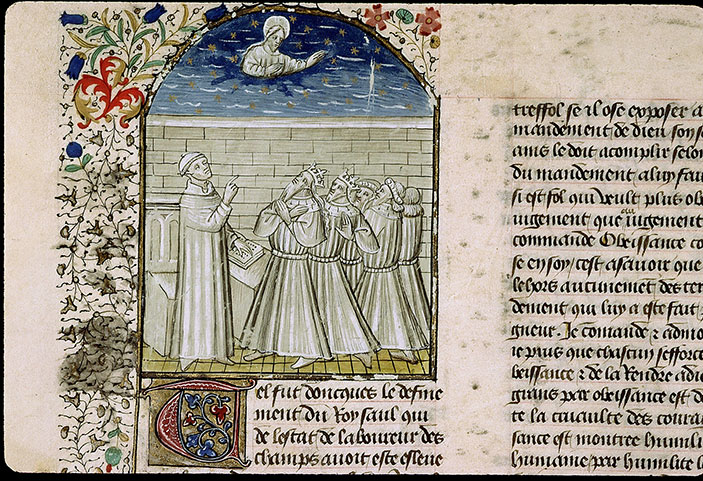 Tel fut doncques le define
ment du Roy saul qui
de lestat de laboureur des
champs avoit este esleue
treffol se il ose exposer a
mandement de dieu son se
ains le doit acomplir selon
du mandement a luy fai
si est fol qui veult plus obe
iugement que au iugement
commande Obeissance co
se en soy / cest asavoir que
le hors aucunement des ter
dement qui luy a este fait
gneur. Je comande & admo
ie puis que chascun sefforce
beissance & de la Rendre adi
grans pare obeissance est d
te la cruaulte des coura
sance est montree humili
humaine / par humilite l